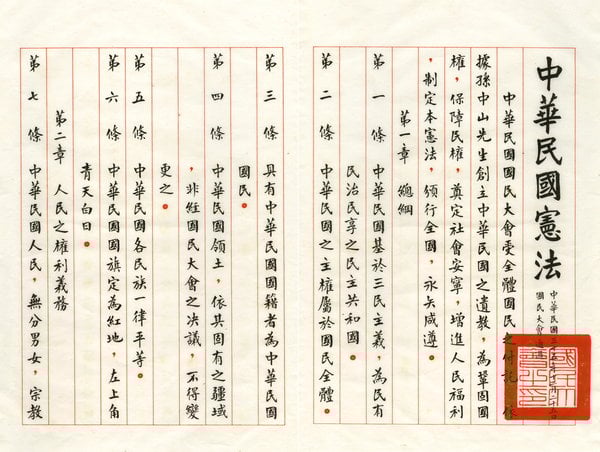 中華民國憲法
中華民國三十五年十二月二十五日
國民大會通過
中華民國國民大會受全體國民之付託，依
據孫中山先生創立中華民國之遺教，為鞏固國
權，保障民權，奠定社會安寧，增進人民福利
，制定本憲法，頒行全國，永矢咸遵。
第一章 總綱
第一條 中華民國基於三民主義，為民有
民治民享之民主共和國。
第二條 中華民國之主權屬於國民全體。
第三條 具有中華民國國籍者為中華民國
國民。
第四條 中華民國領土，依其固有之疆域
，非經國民大會之決議，不得變
更之。
第五條 中華民國各民族一律平等。
第六條 中華民國國旗定為紅地，左上角
青天白日。
第二章 人民之權利義務
第七條 中華民國人民，無分男女，宗教